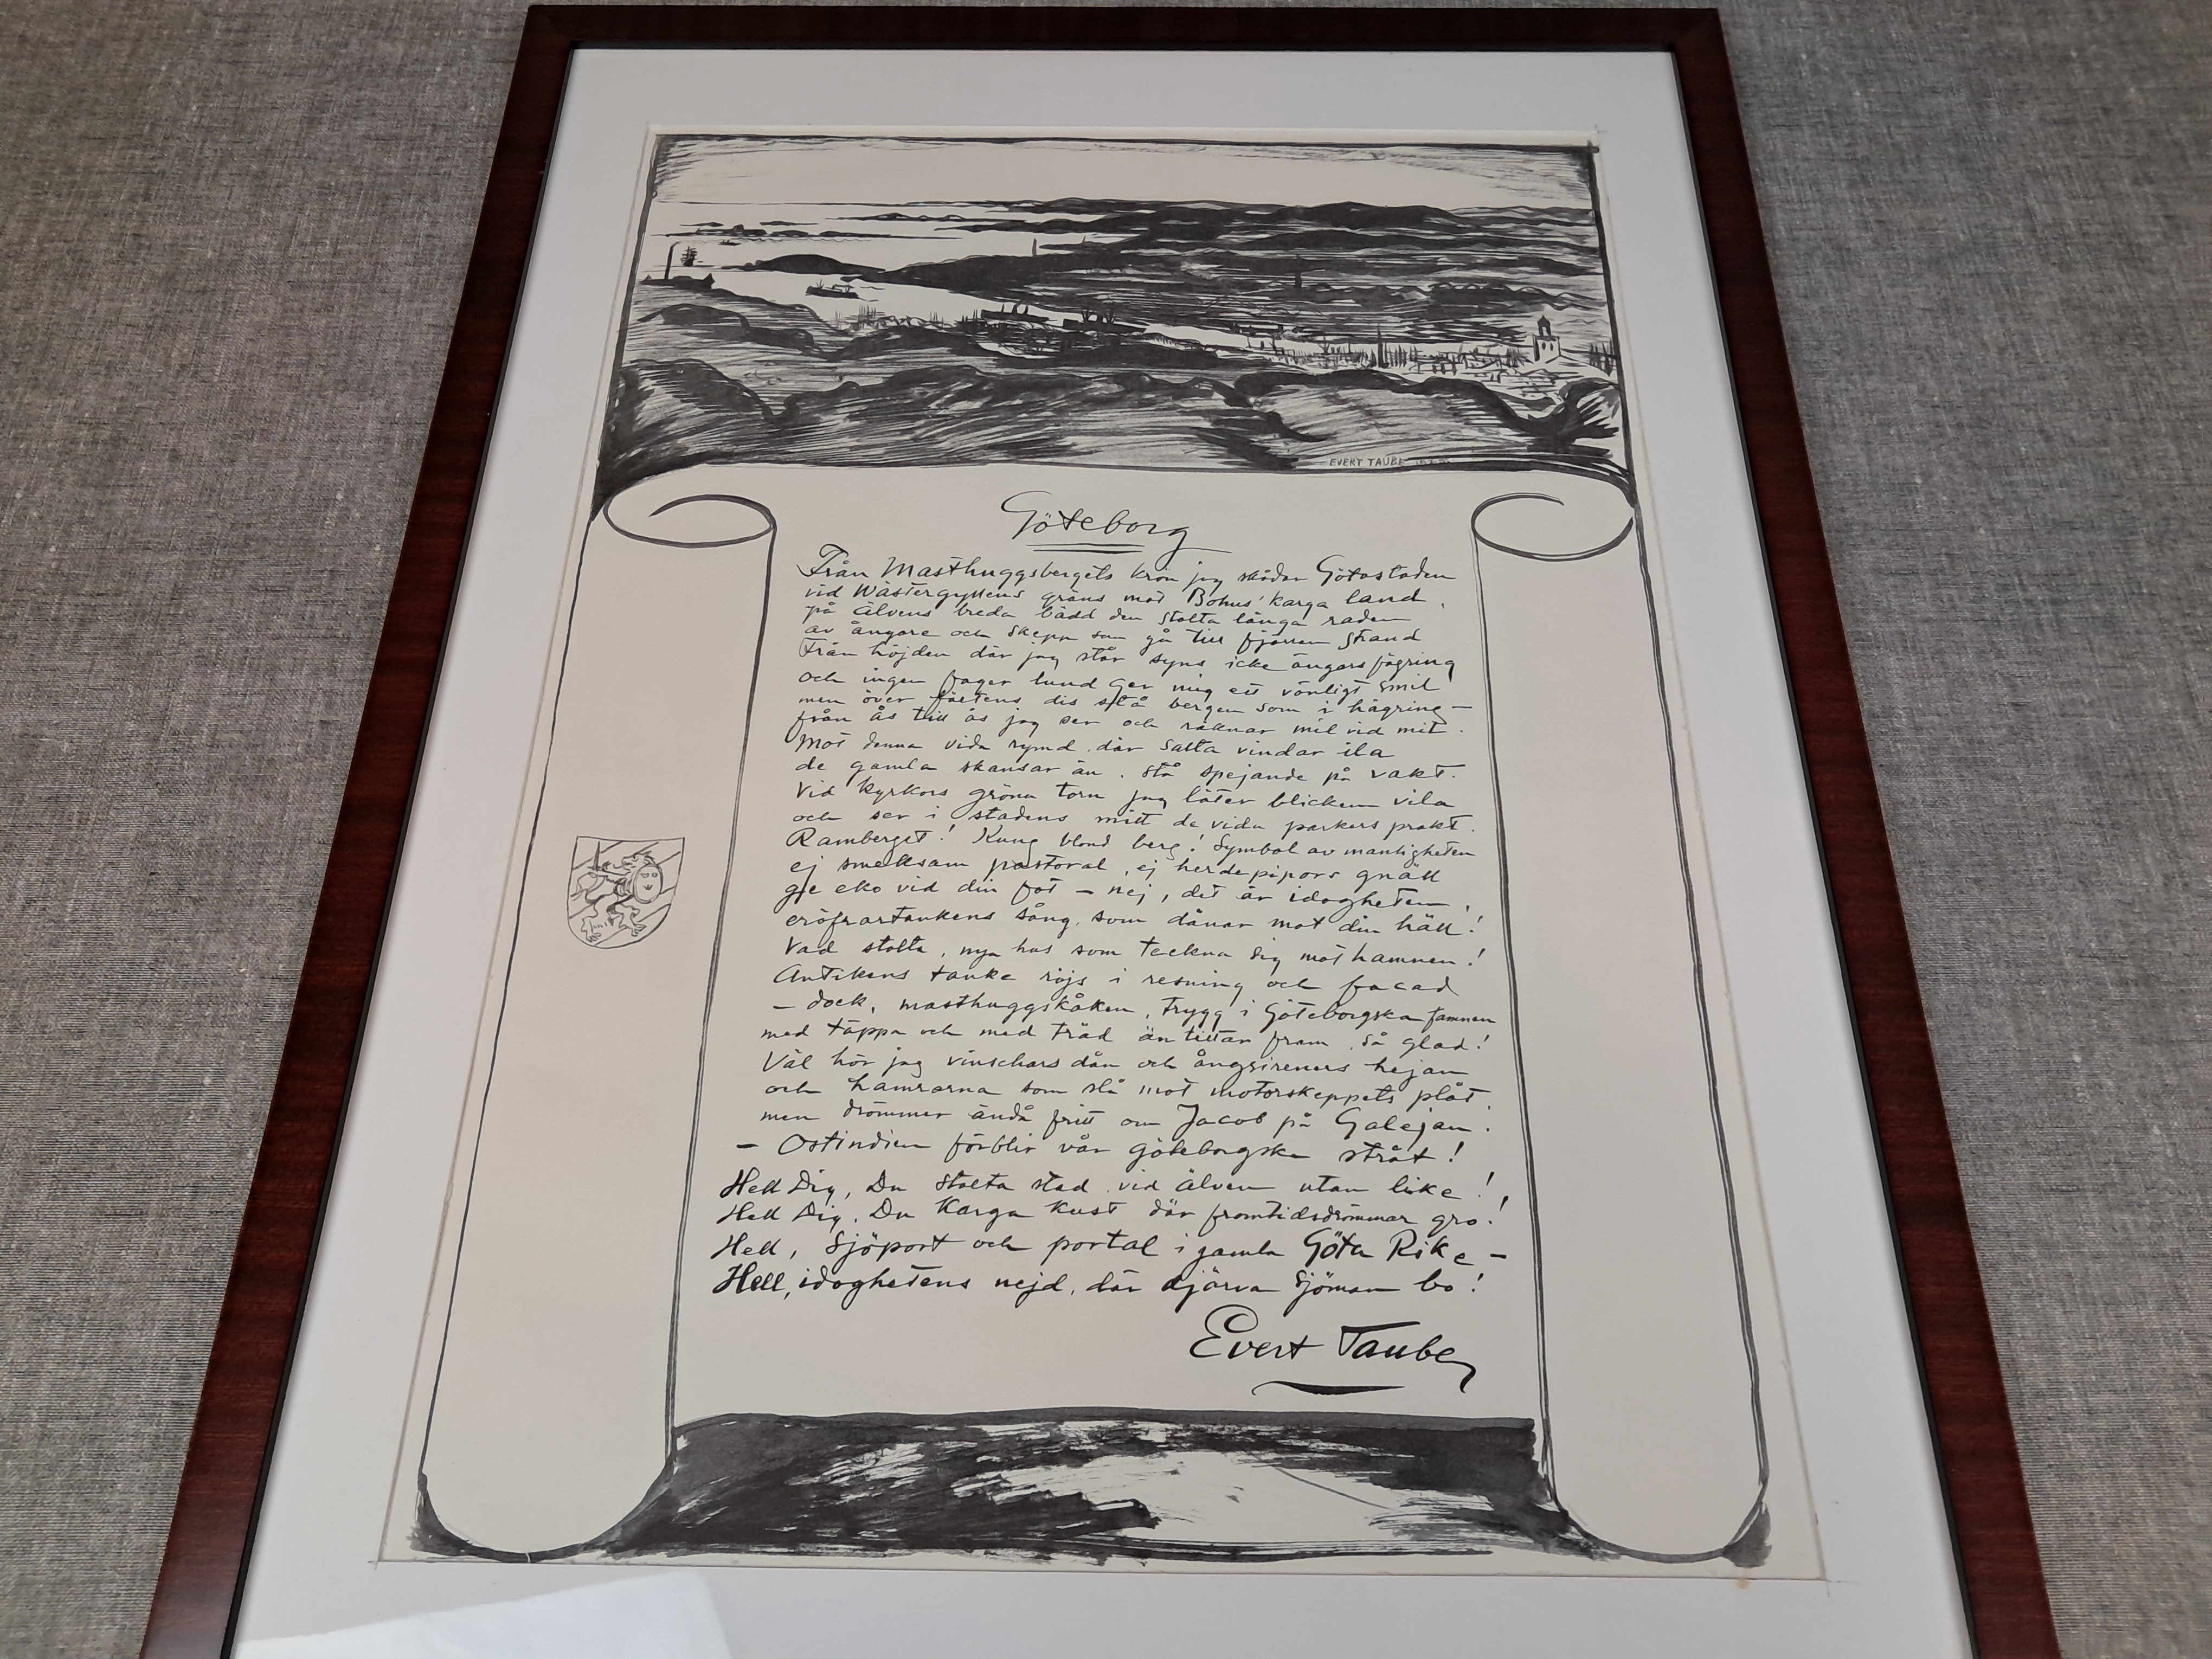 EVERT TAUBE
Göteborg
Från Masthuggsbergets krön jag skådar Götastaden
vid Wästergyllens gräns mot Bohus' karga land,
på älvens breda bädd den stolta långa raden
av ångare och skepp som gå till fjärran strand
Från höjden där jag står syns icke ängars fägring
och ingen fager lund ger mig ett vänligt smil
men över fästens dis stå bergen som i hägring –
från ås till ås jag ser och räknar mil vid mil.
Mot denna vida rymd, där salta vindar ila
de gamla skansar än, stå spejande på vakt.
Vid kyrkors gröna torn jag låter blicken vila
och ser i stadens mitt de vida parkers prakt.
Ramberget! Kung bland berg! Symbol av manligheten
ej smeksam pastoral, ej herdepipors gnäll
ge eko vid din fot – nej, det är idogheten,
eröfrartankens sång, som dånar mot din häll!
Vad stolta, nya hus som teckna sig mot hamnen!
Antikens tanke röjs i resning och facad
– dock, masthuggskåken, trygg i Göteborgska famnen
med täppa och med träd än tittar fram, så glad!
Väl hör jag vinschars dån och ångsireners hejan
och hamrarna som slå mot motorskeppets plåt,
men drömmer ändå fritt om Jacob på Galejan.
– Ostindien förblir vår göteborgska stråt!
Hell Dig, Du stolta stad vid älven utan like!,
Hell Dig, Du karga kust där framtidsdrömmar gro!
Hell, Sjöport och portal i gamla Göta Rike –
Hell, idoghetens nejd, där djärva Sjömän bo!
Evert Taube